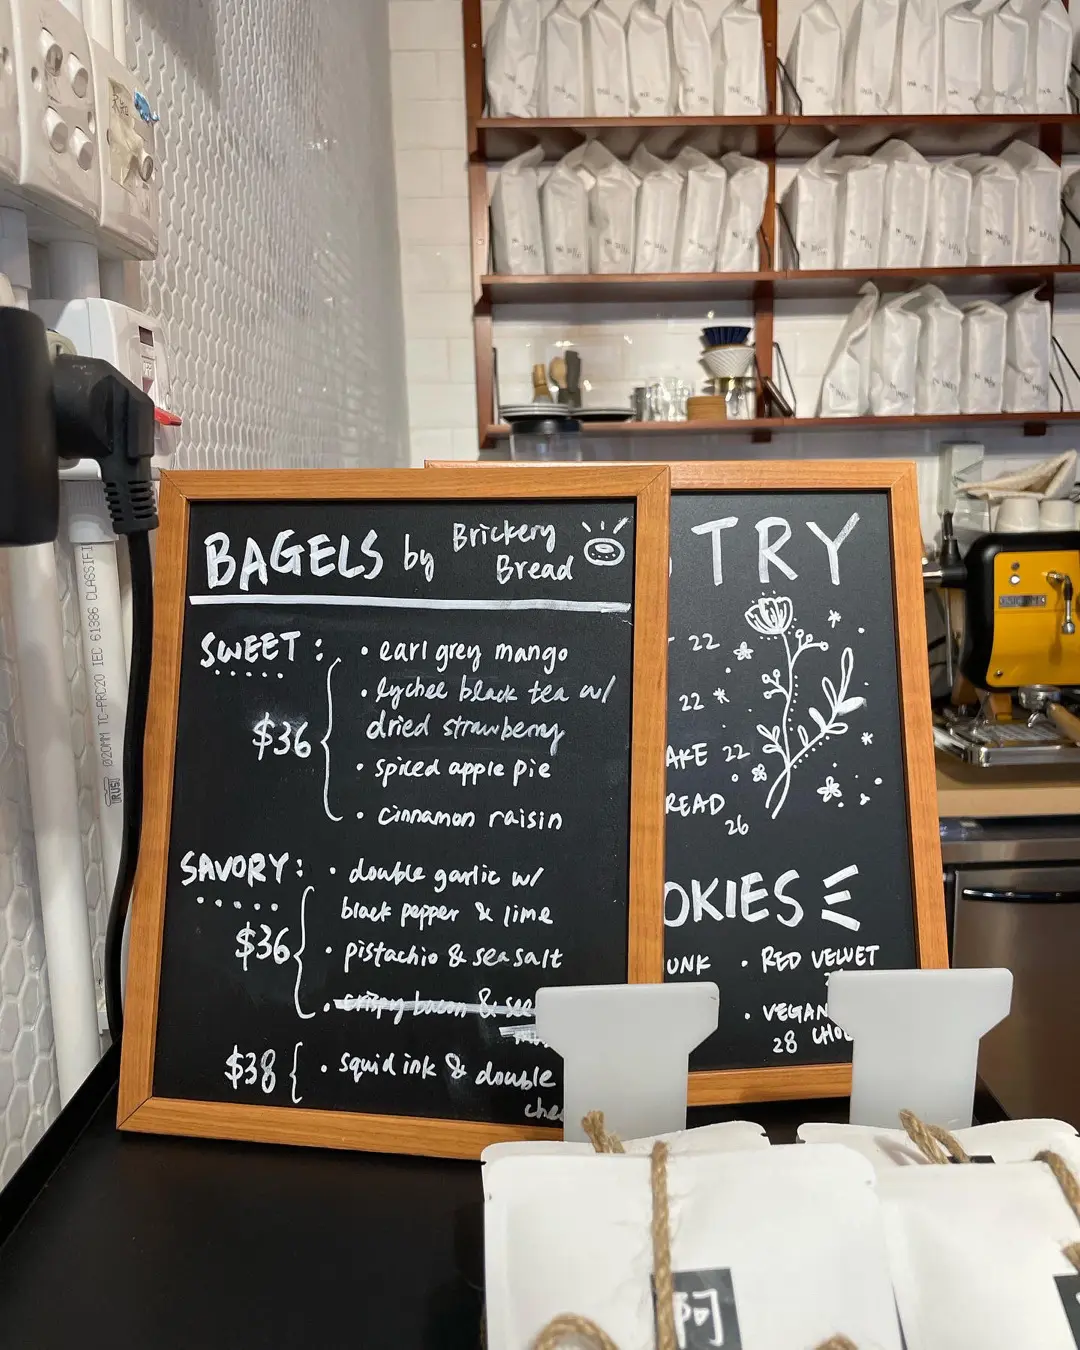 BAGELS by Brickery
Bread
SWEET :
$36
• earl grey mango
• lychee black tea w/
dried strawberry
• spiced apple pie
• cinnamon raisin
SAVORY :
$36
• double garlic w/
black pepper & lime
• pistachio & sea salt
• crispy bacon &
$38
• squid ink & double
TRY
22
22
AKE 22
READ
26
OKIES
UNK
• RED VELVET
• VEGAN
28
@20MM TC-PRC20 IEC 61386 CLASSIFI
阿